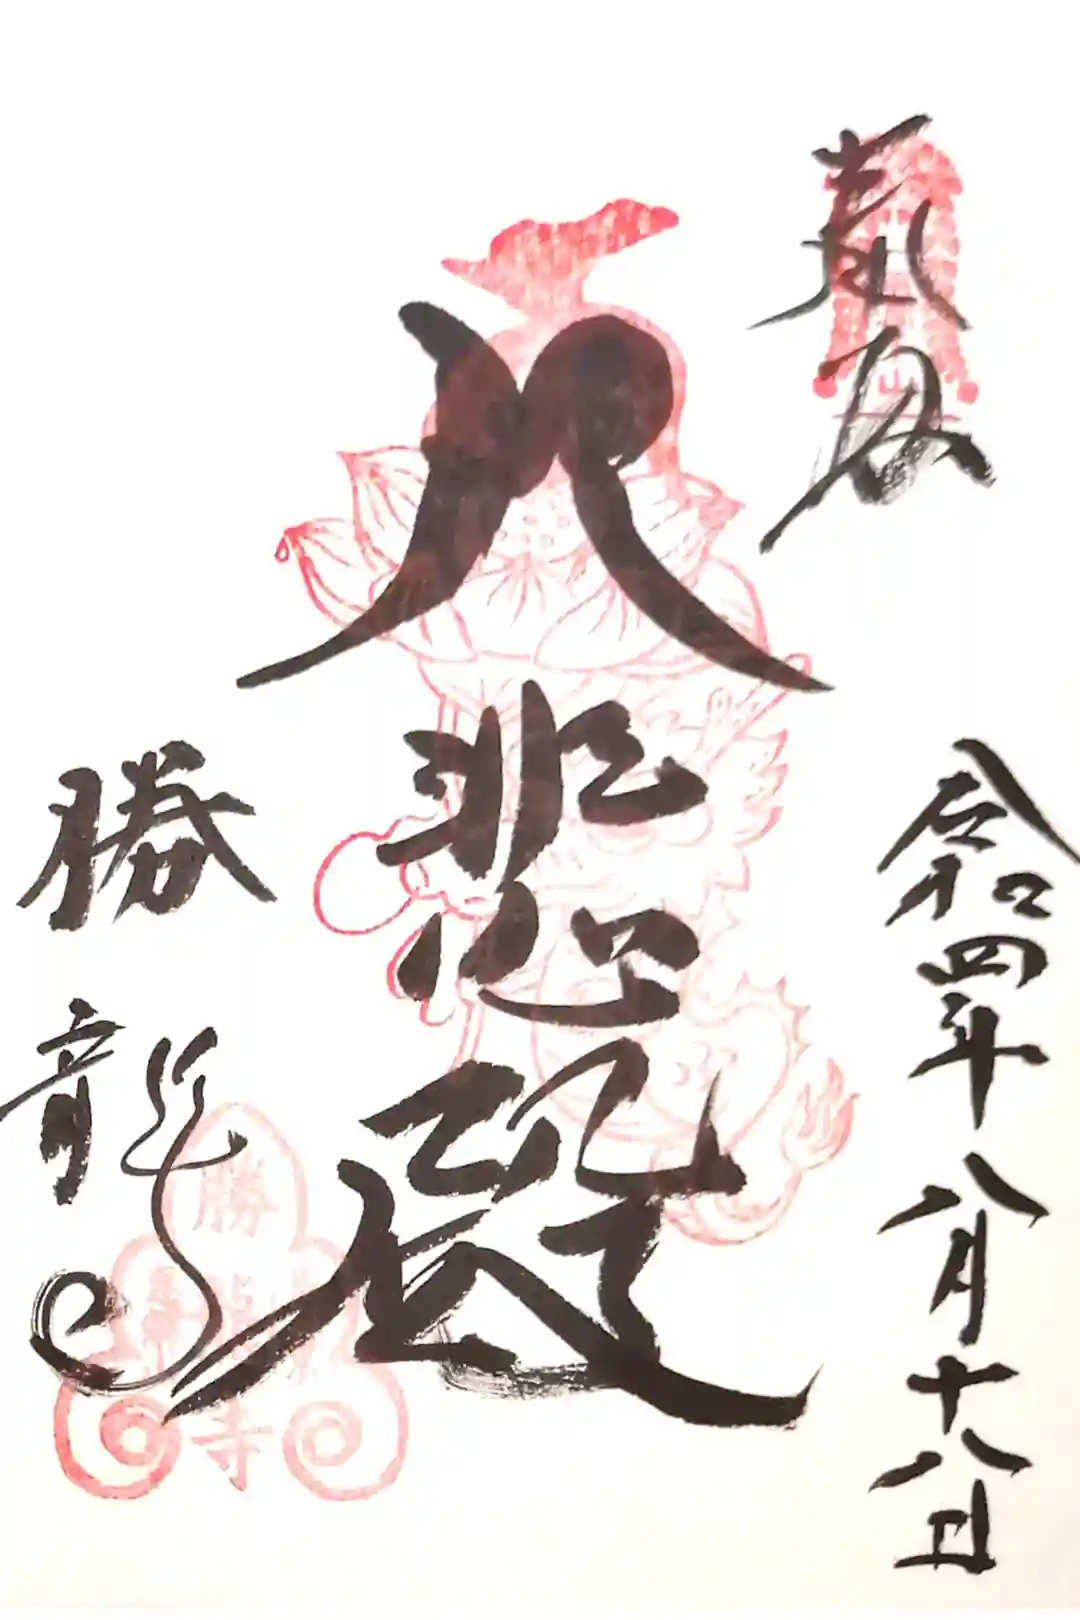 奉拝
令和四年八月十八日
大悲殿
勝龍寺